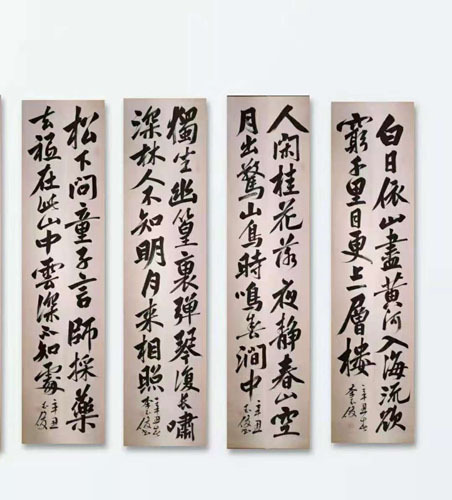 白日依山盡黄河入海流欲
窮千里目更上一層樓
辛丑春
人闲桂花落夜静春山空
月出驚山鳥時鳴春澗中
辛丑
獨坐幽篁裏弹琴復长嘯
深林人不知明月来相照
辛丑春
松下问童子言師採藥
去祗在此山中雲深不知處
辛丑